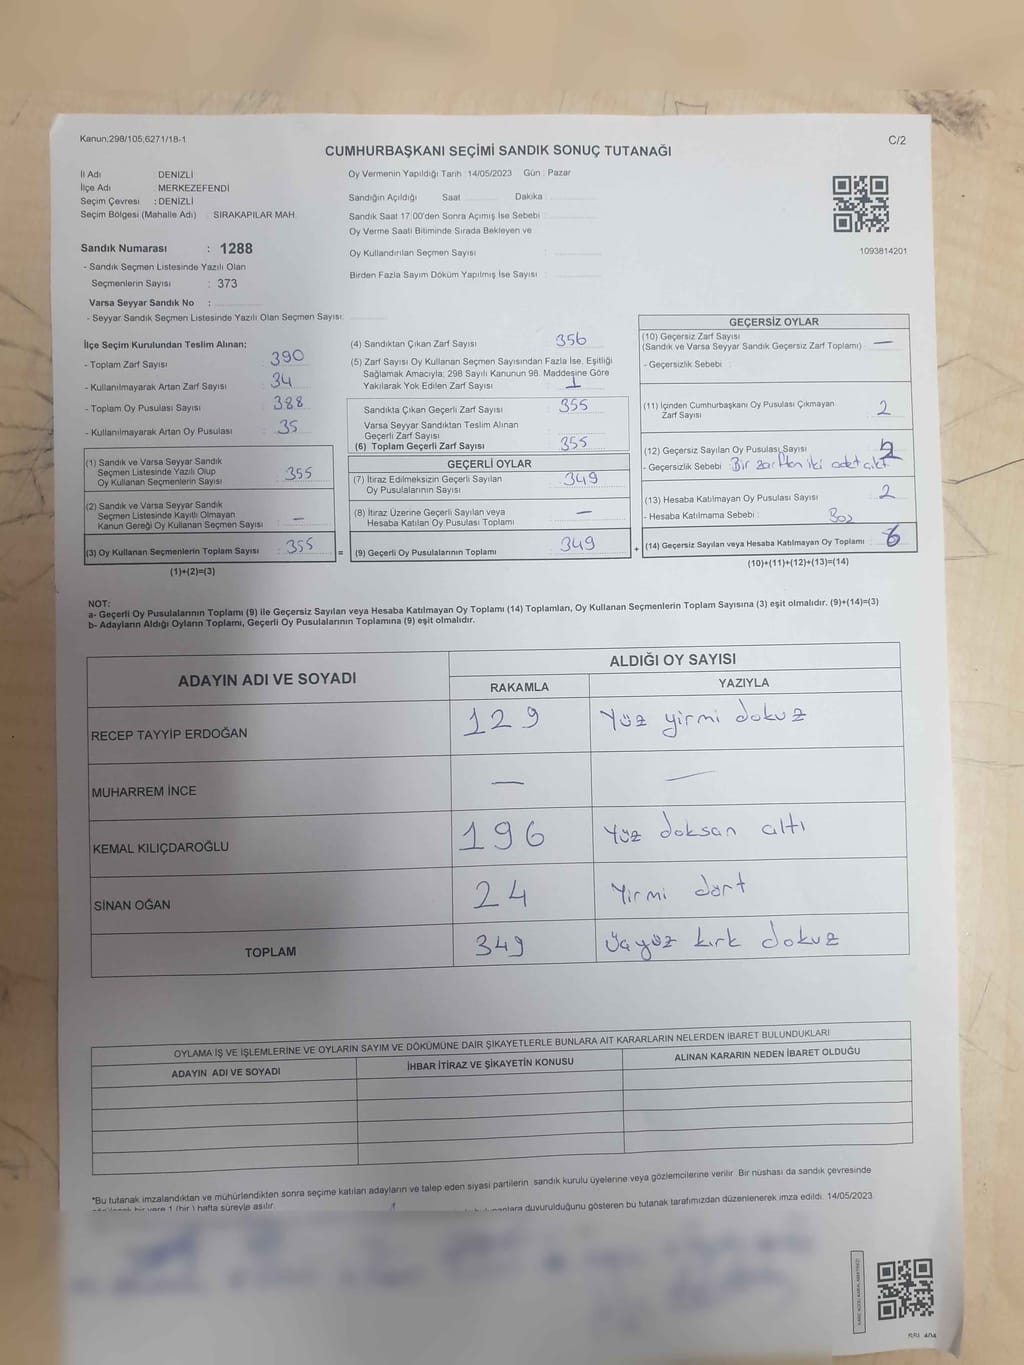 Kanun;298/105;6271/18-1
C/2
CUMHURBAŞKANI SEÇİMİ SANDIK SONUÇ TUTANAĞI
İl Adı DENİZLİ
İlçe Adı MERKEZEFENDİ
Seçim Çevresi : DENİZLİ
Seçim Bölgesi (Mahalle Adı) : SIRAKAPILAR MAH.
Sandık Numarası : 1288
- Sandık Seçmen Listesinde Yazılı Olan
Seçmenlerin Sayısı : 373
Varsa Seyyar Sandık No :
- Seyyar Sandık Seçmen Listesinde Yazılı Olan Seçmen Sayısı:
Oy Vermenin Yapıldığı Tarih : 14/05/2023 Gün : Pazar
Sandığın Açıldığı Saat Dakika
Sandık Saat 17.00'den Sonra Açımış İse Sebebi
Oy Verme Saati Bitiminde Sırada Bekleyen ve
Oy Kullandırılan Seçmen Sayısı :
Birden Fazla Sayım Döküm Yapılmış İse Sayısı :
1093814201
İlçe Seçim Kurulundan Teslim Alınan;
- Toplam Zarf Sayısı : 390
- Kullanılmayarak Artan Zarf Sayısı : 34
- Toplam Oy Pusulası Sayısı : 388
- Kullanılmayarak Artan Oy Pusulası : 35
(1) Sandık ve Varsa Seyyar Sandık
Seçmen Listesinde Yazılı Olup
Oy Kullanan Seçmenlerin Sayısı : 355
(2) Sandık ve Varsa Seyyar Sandık
Seçmen Listesinde Kayıtlı Olmayan
Kanun Gereği Oy Kullanan Seçmen Sayısı : —
(3) Oy Kullanan Seçmenlerin Toplam Sayısı : 355
(1)+(2)=(3)
(4) Sandıktan Çıkan Zarf Sayısı : 356
(5) Zarf Sayısı Oy Kullanan Seçmen Sayısından Fazla İse, Eşitliği
Sağlamak Amacıyla; 298 Sayılı Kanunun 98. Maddesine Göre
Yakılarak Yok Edilen Zarf Sayısı : 1
Sandıkta Çıkan Geçerli Zarf Sayısı : 355
Varsa Seyyar Sandıktan Teslim Alınan
Geçerli Zarf Sayısı :
(6) Toplam Geçerli Zarf Sayısı : 355
GEÇERLİ OYLAR
(7) İtiraz Edilmeksizin Geçerli Sayılan
Oy Pusulalarının Sayısı : 349
(8) İtiraz Üzerine Geçerli Sayılan veya
Hesaba Katılan Oy Pusulası Toplamı : —
= (9) Geçerli Oy Pusulalarının Toplamı : 349
GEÇERSİZ OYLAR
(10) Geçersiz Zarf Sayısı
(Sandık ve Varsa Seyyar Sandık Geçersiz Zarf Toplamı) : —
- Geçersizlik Sebebi :
(11) İçinden Cumhurbaşkanı Oy Pusulası Çıkmayan
Zarf Sayısı : 2
(12) Geçersiz Sayılan Oy Pusulası Sayısı : 2
- Geçersizlik Sebebi : Bir zarftan iki adet çıktı
(13) Hesaba Katılmayan Oy Pusulası Sayısı : 2
- Hesaba Katılmama Sebebi : Boş
+ (14) Geçersiz Sayılan veya Hesaba Katılmayan Oy Toplamı : 6
(10)+(11)+(12)+(13)=(14)
NOT:
a- Geçerli Oy Pusulalarının Toplamı (9) ile Geçersiz Sayılan veya Hesaba Katılmayan Oy Toplamı (14) Toplamları, Oy Kullanan Seçmenlerin Toplam Sayısına (3) eşit olmalıdır. (9)+(14)=(3)
b- Adayların Aldığı Oyların Toplamı, Geçerli Oy Pusulalarının Toplamına (9) eşit olmalıdır.
ADAYIN ADI VE SOYADI
ALDIĞI OY SAYISI
RAKAMLA YAZIYLA
RECEP TAYYİP ERDOĞAN 129 Yüz yirmi dokuz
MUHARREM İNCE — —
KEMAL KILIÇDAROĞLU 196 Yüz doksan altı
SİNAN OĞAN 24 Yirmi dört
TOPLAM 349 Üçyüz kırk dokuz
OYLAMA İŞ VE İŞLEMLERİNE VE OYLARIN SAYIM VE DÖKÜMÜNE DAİR ŞİKAYETLERLE BUNLARA AİT KARARLARIN NELERDEN İBARET BULUNDUKLARI
ADAYIN ADI VE SOYADI İHBAR İTİRAZ VE ŞİKAYETİN KONUSU ALINAN KARARIN NEDEN İBARET OLDUĞU
*Bu tutanak imzalandıktan ve mühürlendikten sonra seçime katılan adayların ve talep eden siyasi partilerin sandık kurulu üyelerine veya gözlemcilerine verilir. Bir nüshası da sandık çevresinde
bir yere 1 (bir) hafta süreyle asılır. duyurulduğunu gösteren bu tutanak tarafımızdan düzenlenerek imza edildi. 14/05/2023